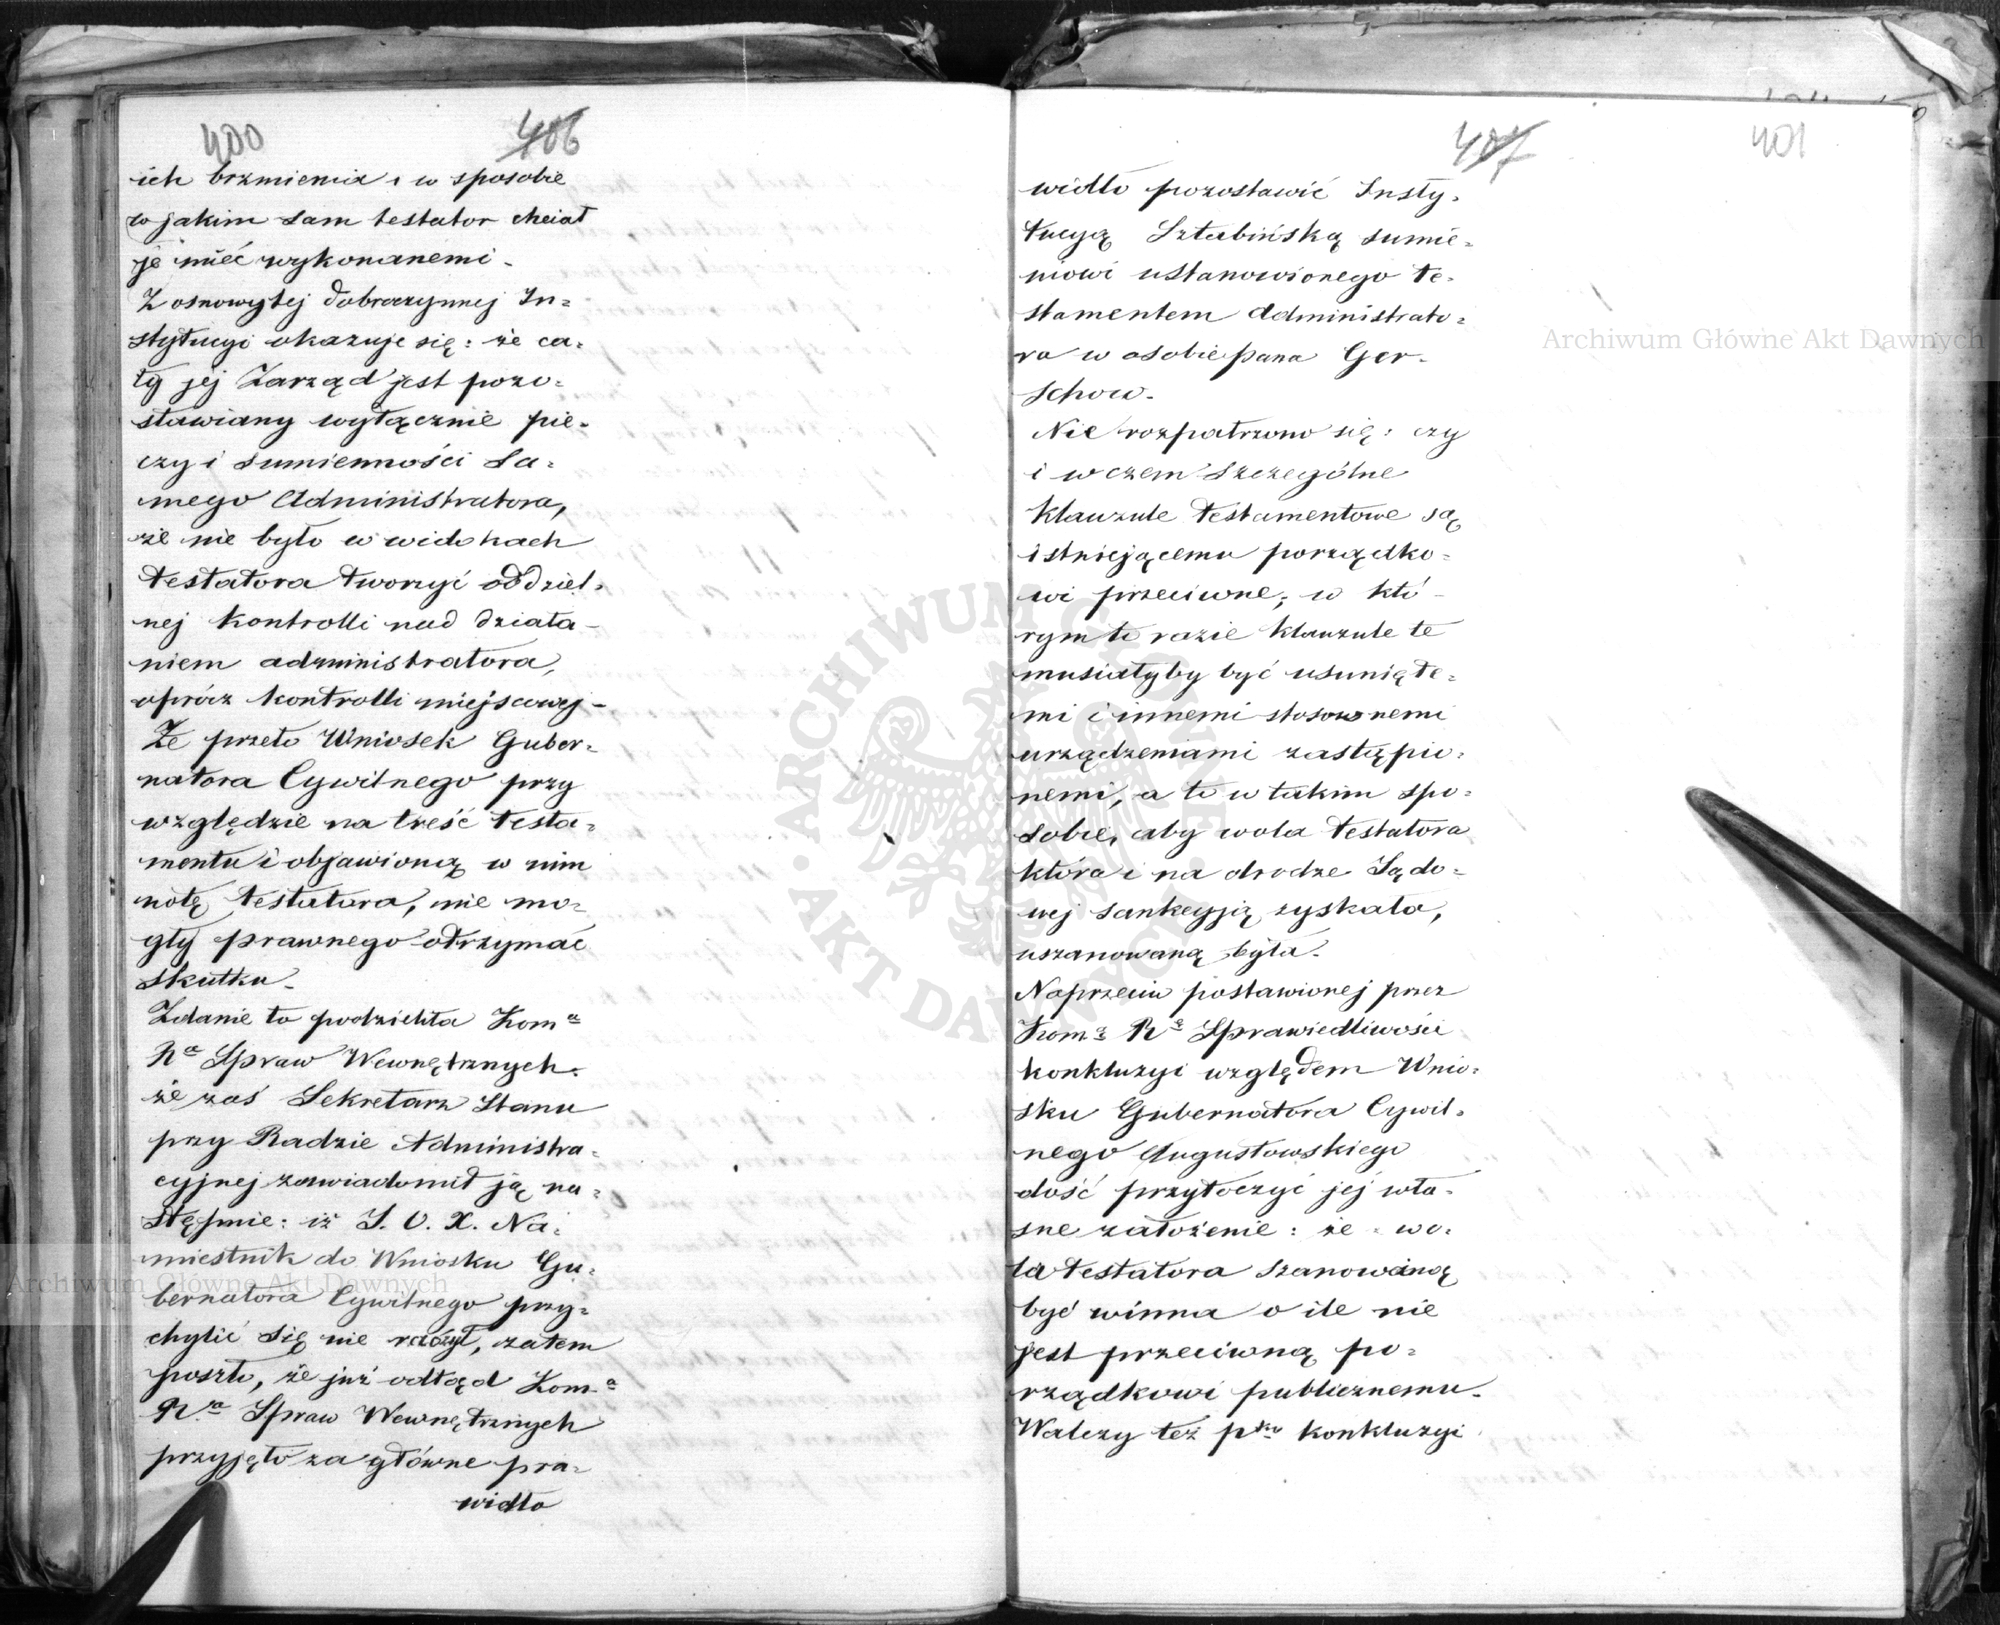 400 406
ich brzmienia i w sposobie
w jakim sam testator chciał
je mieć wykonanemi -
Z osnowy tej dobroczynnej In=
stytucyi okazuje się: że ca=
ły jej Zarząd jest pozo=
stawiany wyłącznie pie=
czy i sumienności sa=
mego Administratora,
że nie było w widokach
testatora tworzyć oddziel=
nej kontrolli nad działa-
niem administratora,
oprócz kontrolli miejscowej -
Że przeto Wniosek Guber=
natora Cywilnego przy
względzie na treść testa=
mentu i objawioną w nim
wolę testatora, nie mo=
gły prawnego otrzymać
skutku -
Zdanie to podzieliła Kom.a
R.a Spraw Wewnętrznych.
że zaś Sekretarz Stanu
przy Radzie Administra=
cyjnej zawiadomił ją na=
stępnie: iż J. O. X. Na=
miestnik do Wniosku Gu=
bernatora Cywilnego przy=
chylić się nie raczył, zatem
poszło, że już odtąd Kom.a
R.a Spraw Wewnętrznych
przyjęło za główne pra=
widło
407 401
widło pozostawić Insty=
tucyą Sztabińską sumie=
niowi ustanowionego te=
stamentem Administrato=
ra w osobie pana Ger-
schow -
Nie rozpatrzono się: czy
i w czem szczególne
klauzule testamentowe są
istniejącemu porządko=
wi przeciwne, w któ-
rym to razie klauzule te
musiałyby być usunięte=
mi i innemi stosownemi
urządzeniami zastąpio=
nemi, a to w takim spo=
sobie, aby wola testatora
która i na drodze Sądo=
wej sankcyją zyskała,
uszanowaną była -
Naprzeciw postawionej przez
Kom.a R.a Sprawiedliwości
konkluzyi względem Wnio=
sku Gubernatora Cywil=
nego Augustowskiego
dość przytoczyć jej wła=
sne założenie: że wo=
la testatora szanowaną
być winna o ile nie
jest przeciwną po=
rządkowi publicznemu -
Walczy też pko konkluzyi
ARCHIWUM GŁÓWNE · AKT DAWNYCH ·
Archiwum Główne Akt Dawnych
Archiwum Główne Akt Dawnych